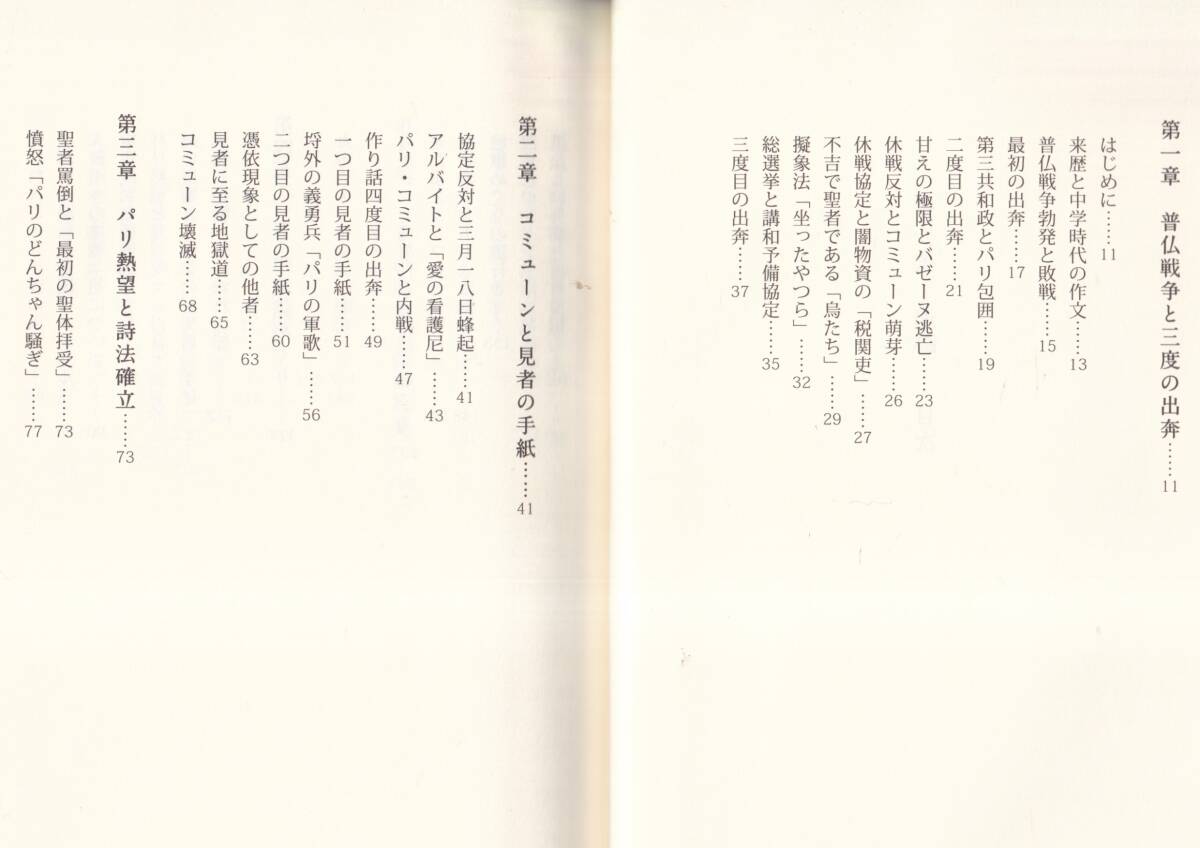 第一章　普仏戦争と三度の出奔……11
はじめに……11
来歴と中学時代の作文……13
普仏戦争勃発と敗戦……15
最初の出奔……17
第三共和政とパリ包囲……19
二度目の出奔……21
甘えの極限とバゼーヌ逃亡……23
休戦反対とコミューン萌芽……26
休戦協定と闇物資の「税関吏」……27
不吉で聖者である「烏たち」……29
擬象法「坐ったやつら」……32
総選挙と講和予備協定……35
三度目の出奔……37
第二章　コミューンと見者の手紙……41
協定反対と三月一八日蜂起……41
アルバイトと「愛の看護尼」……43
パリ・コミューンと内戦……47
作り話四度目の出奔……49
一つ目の見者の手紙……51
埒外の義勇兵「パリの軍歌」……56
二つ目の見者の手紙……60
憑依現象としての他者……63
見者に至る地獄道……65
コミューン壊滅……68
第三章　パリ熱望と詩法確立……73
聖者罵倒と「最初の聖体拝受」……73
憤怒「パリのどんちゃん騒ぎ」……77